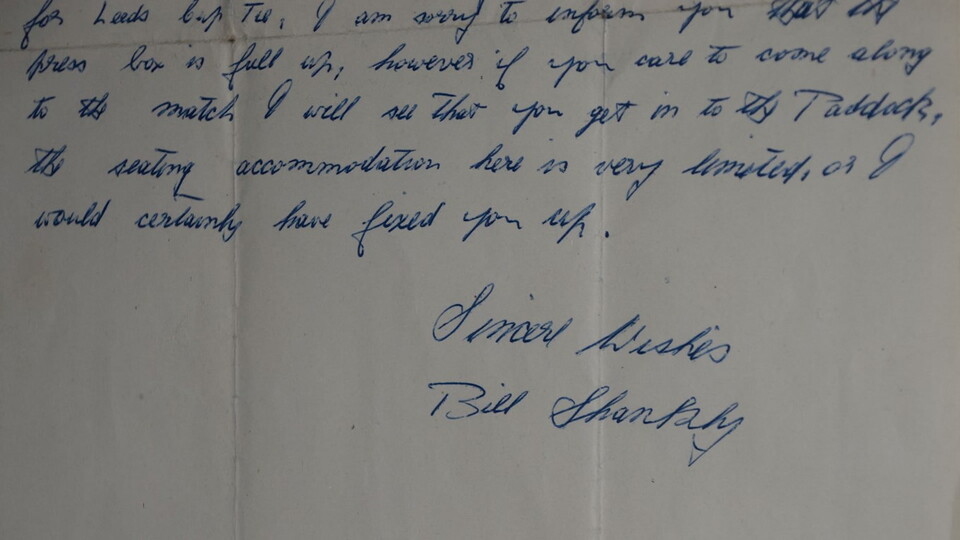 for Leeds Cup Tie, I am sorry to inform you that the
press box is full up, however if you care to come along
to the match I will see that you get in to the Paddock,
the seating accommodation here is very limited, or I
would certainly have fixed you up.
Sincere Wishes
Bill Shankly